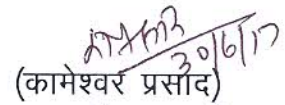 30/6/17
(कामेश्वर प्रसाद)